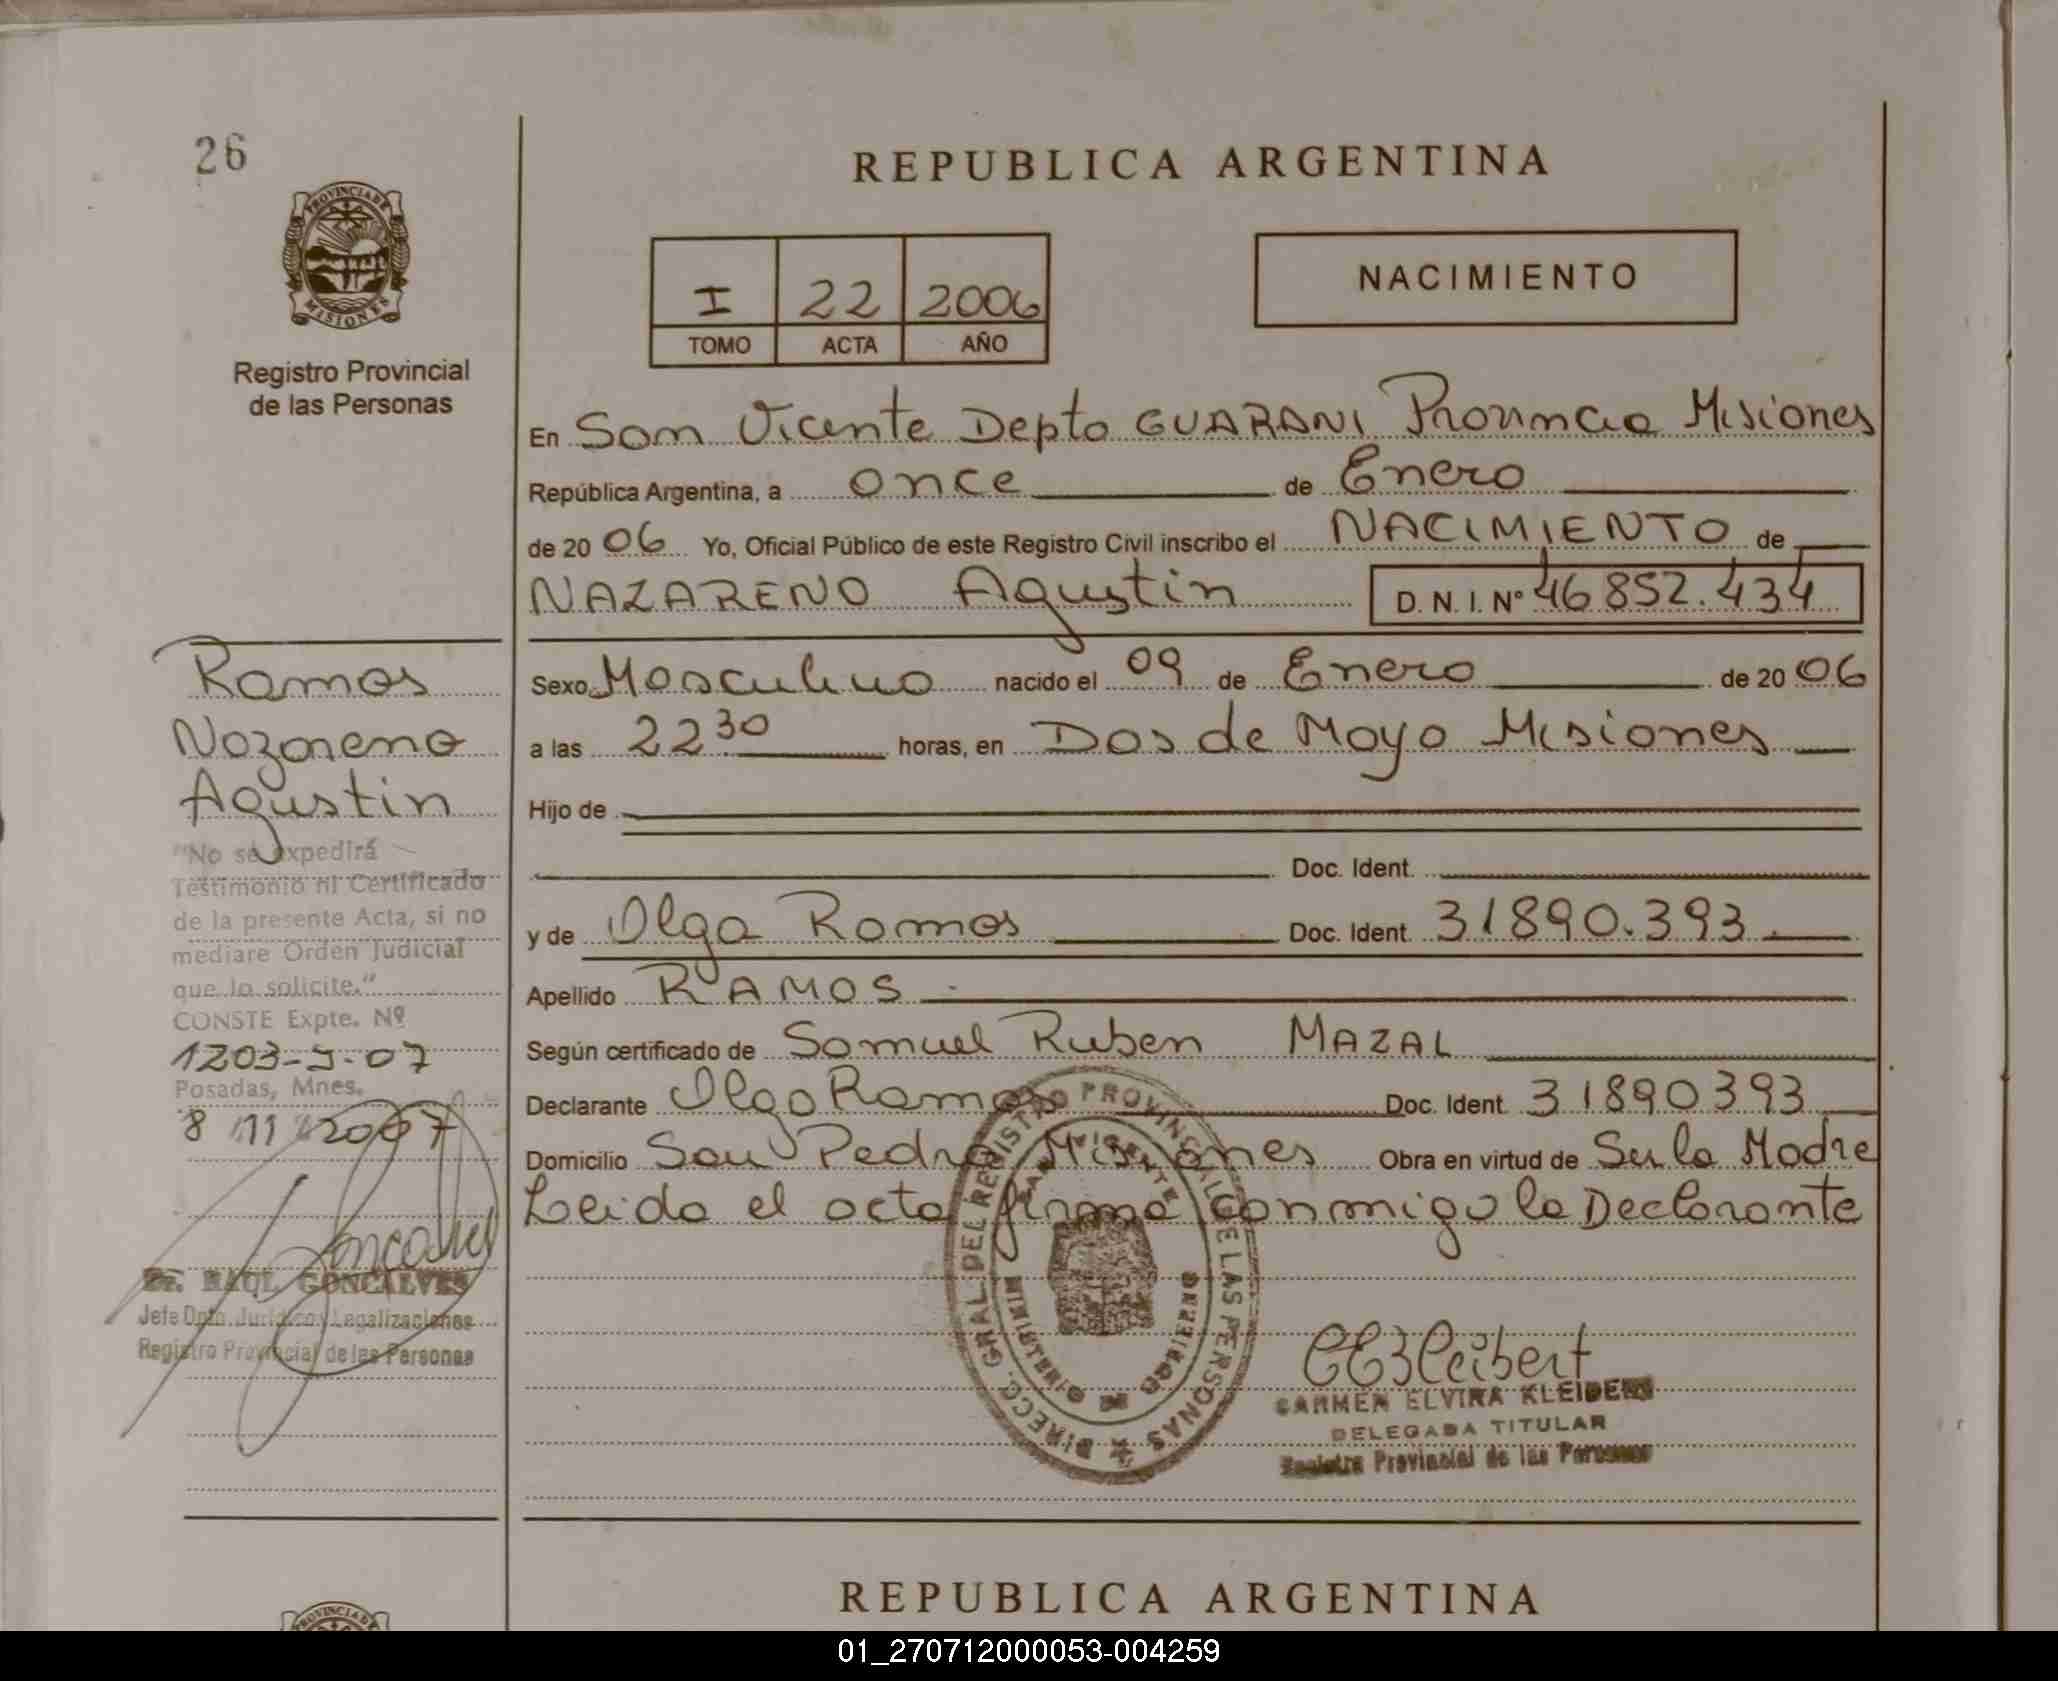 26
PROVINCIA DE
MISIONES
Registro Provincial
de las Personas
REPUBLICA ARGENTINA
I 22 2006
TOMO ACTA AÑO
NACIMIENTO
En San Vicente Depto GUARANI Provincia Misiones
República Argentina, a once de Enero
de 20 06 Yo, Oficial Público de este Registro Civil inscribo el NACIMIENTO de
NAZARENO Agustin D.N.I. Nº 46852.434
Sexo Masculino nacido el 09 de Enero de 20 06
a las 22 30 horas, en Dos de Mayo Misiones
Hijo de
Doc. Ident.
y de Olga Ramos Doc. Ident. 31890.393
Apellido RAMOS
Según certificado de Samuel Ruben MAZAL
Declarante Olga Ramos Doc. Ident. 31890393
Domicilio San Pedro Misiones Obra en virtud de Ser la Madre
Leida el acta firma conmigo la Declarante
Ramos
Nazareno
Agustin
"No se expedirá
Testimonio ni Certificado
de la presente Acta, si no
mediare Orden Judicial
que lo solicite."
CONSTE Expte. Nº
1203-J-07
Posadas, Mnes.
8 11 2007
Dr. RAUL GONCALVES
Jefe Dpto. Jurídico y Legalizaciones
Registro Provincial de las Personas
DIRECC. GRAL. DEL REGISTRO PROVINCIAL DE LAS PERSONAS
SAN VICENTE
MINISTERIO DE GOBIERNO
CEKleibert
CARMEN ELVIRA
DELEGADA TITULAR
Registro Provincial de las Personas
REPUBLICA ARGENTINA
PROVINCIA DE
01_270712000053-004259